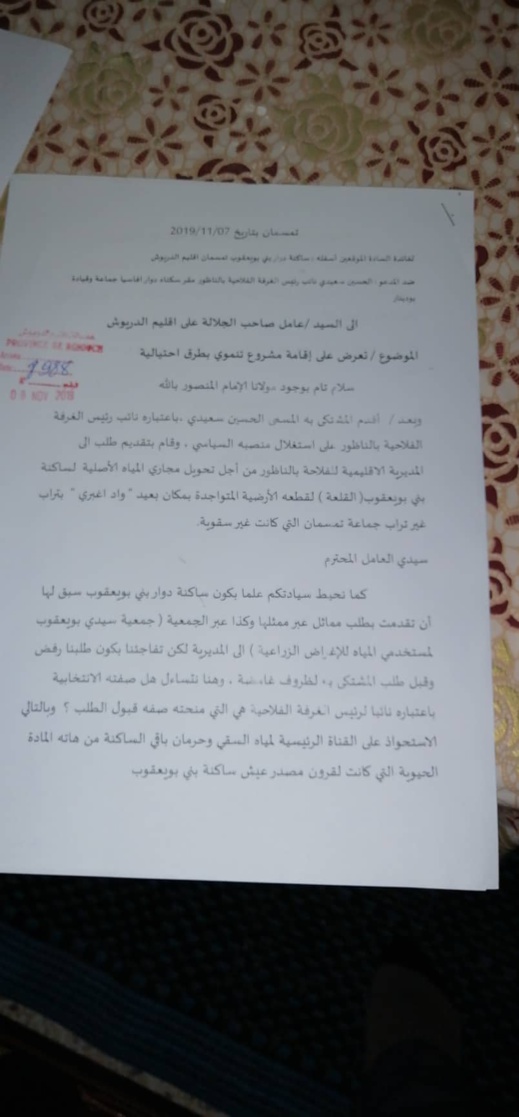 تمسمان بتاريخ 2019/11/07
لفائدة السادة الموقعين أسفله ، ساكنة دوار بني بويعقوب تمسمان اقليم الدريوش
ضد المدعو : الحسين سعيدي نائب رئيس الغرفة الفلاحية بالناظور مقر سكناه دوار افاسيا جماعة وقيادة
بودينار
الى السيد /عامل صاحب الجلالة على اقليم الدريوش
الموضوع / تعرض على إقامة مشروع تنموي بطرق احتيالية
PROVINCE DE
9988
09 NOV 2019
سلام تام بوجود مولانا الإمام المنصور بالله
وبعد / أقدم المشتكى به المسمى الحسين سعيدي ،باعتباره نائب رئيس الغرفة
الفلاحية بالناظور على استغلال منصبه السياسي ، وقام بتقديم طلب الى
المديرية الاقليمية للفلاحة بالناظور من أجل تحويل مجاري المياه الأصلية لساكنة
بني بويعقوب( القلعة ) لقطعه الأرضية المتواجدة بمكان بعيد " واد اغبري " بتراب
غير تراب جماعة تمسمان التي كانت غير سقوية.
سيدي العامل المحترم
كما نحيط سيادتكم علما بكون ساكنة دوار بني بويعقوب سبق لها
أن تقدمت بطلب مماثل عبر ممثلها وكذا عبر الجمعية ( جمعية سيدي بويعقوب
لمستخدمي المياه للإغراض الزراعية ) الى المديرية لكن تفاجئنا بكون طلبنا رفض
وقبل طلب المشتكى به لظروف غامضة ، وهنا نتساءل هل صفته الانتخابية
باعتباره نائبا لرئيس الغرفة الفلاحية هي التي منحته صفه قبول الطلب ؟ وبالتالي
الاستحواذ على القناة الرئيسية لمياه السقي وحرمان باقي الساكنة من هاته المادة
الحيوية التي كانت لقرون مصدر عيش ساكنة بني بويعقوب